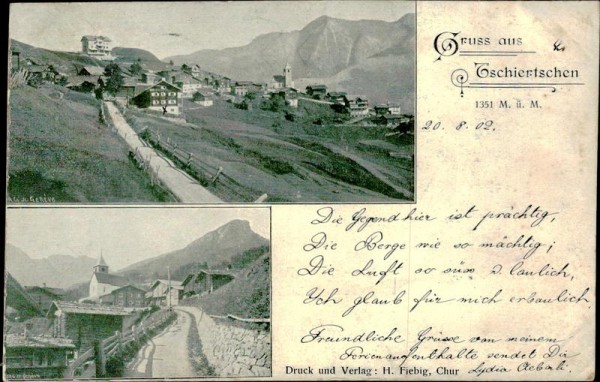 Gruss aus
Tschiertschen
1351 M. ü. M.
20. 8. 02.
Die Gegend hier ist prächtig,
Die Berge wie so mächtig;
Die Luft so süss u. laulich,
Ich glaub für mich erbaulich
Freundliche Grüsse von meinem
Ferienaufenthalte sendet Dir
Lydia Aebli.
Druck und Verlag: H. Fiebig, Chur